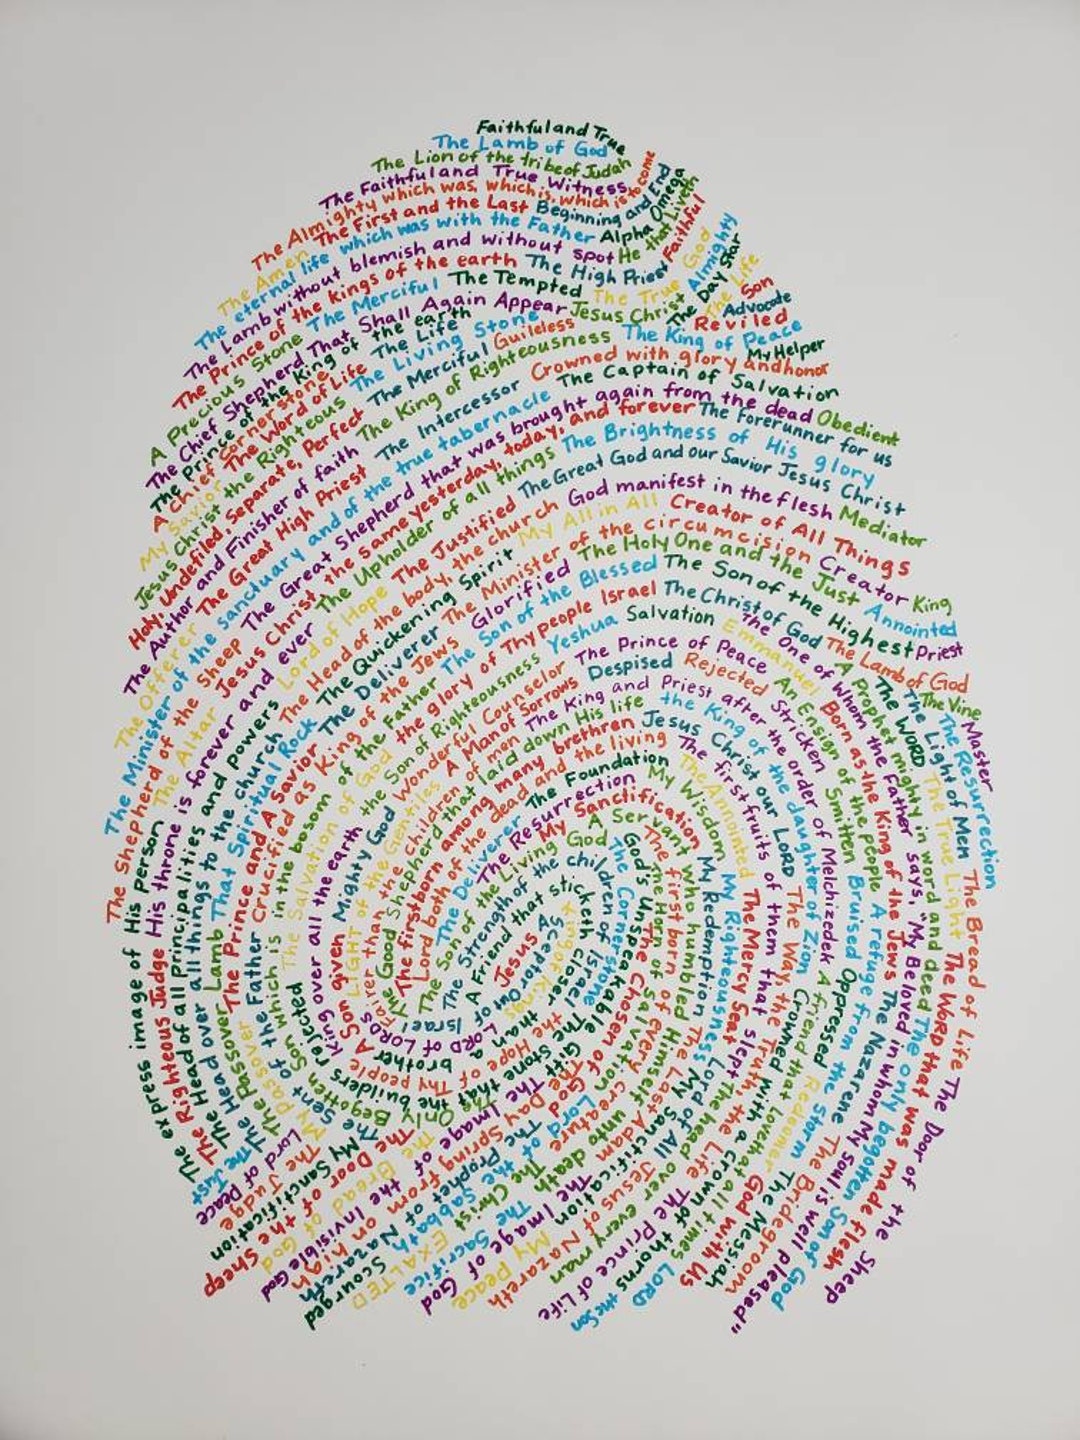 Faithful and True
The Lamb of God
The Lion of the tribe of Judah
The Faithful and True Witness
The Almighty which was, which is, which is to come
The Amen The First and the Last Beginning and End
The eternal life which was with the Father Alpha Omega
The Lamb without blemish and without spot He that Liveth
The Prince of the kings of the earth The High Priest Faithful
A Precious Stone The Merciful The Tempted The True God
The Chief Shepherd That Shall Again Appear Jesus Christ Almighty
The Prince of the King of the earth The Life The Day Star
A Chief Cornerstone The Living Stone Guileless The Life
My Savior The Word of Life The Merciful The King of Peace Reviled Son
Jesus Christ the Righteous The King of Righteousness My Helper Advocate
Holy, Undefiled, Separate, Perfect The Intercessor Crowned with glory and honor
The Author and Finisher of faith The Captain of Salvation
The Offerer The Great High Priest
The Minister of the sanctuary and of the true tabernacle
The Great Shepherd that was brought again from the dead Obedient
The Shepherd of the Sheep Jesus Christ the same yesterday, today, and forever The Forerunner for us
The Altar The Upholder of all things The Brightness of His glory
The express image of His person His throne is forever and ever
Lord of Hope The Justified The Great God and our Savior Jesus Christ
The Righteous Judge The Head of the body, the church God manifest in the flesh Mediator
The Head of all Principalities and powers The Quickening Spirit My All in All Creator of All Things
The Just The Head over all things to the church The Deliverer The Minister of the circumcision Creator King
Lord of Peace The Passover Lamb That Spiritual Rock Glorified The Holy One and the Just Annointed
The Judge My passover The Prince and A Savior King of the Jews The Son of the Blessed The Son of the Highest Priest
The Father Crucified as the glory of Thy people Israel The Christ of God The Lamb of God
The Sent of the Father in the bosom of the Father Yeshua Salvation Emmanuel The Vine Master
The Only Begotten Son which is The Salvation of God the Son of Righteousness The Prince of Peace The One of Whom the Father says, "My Beloved in whom My Soul is well pleased"
King over all the earth Mighty God Wonderful Counselor Despised Rejected An Ensign of the people A refuge from the storm
A Son given LIGHT of the Gentiles A Man of Sorrows
Fairer than the children of men The King and Priest after the order of Melchizedek
The Good Shepherd that laid down His life the King of the daughter of Zion
The firstborn among many brethren Jesus Christ our LORD
Lord both of the dead and the living The firstfruits of them that slept
The Deliverer The Foundation The Annointed
The Resurrection My Wisdom My Righteousness
The Son of the Living God My Sanctification My Redemption
The Strength of the children of Israel
A Servant Who humbled Himself unto death
A Friend that sticketh closer than a brother
The first born of every creature
God's Unspeakable Gift
The Corner Stone
The Horn of Salvation
The Chosen of God
Jesus
King of Kings
LORD of LORDS
The Hope of Thy people Israel
The Stone that the builders rejected
A Prophet mighty in word and deed The only begotten Son of God
The WORD The True Light The WORD that was made flesh
The Light of Men
The Resurrection
The Bread of Life The Door of the Sheep
Born as the King of the Jews The Nazarene The Bridegroom
Stricken Smitten Bruised Oppressed Redeemer The Messiah
A friend that loveth at all times
The Way, the Truth, the Life God with Us
Crowned with a Crown of thorns
The Mercy Seat
Lord of All
The Head over every man
The Prince of Life
The Last Adam Jesus of Nazareth
My Sanctification
The Image of God
My Peace
Lord of the Sabbath
The Christ
The Sacrifice
The Day Spring from on high
The Prophet of Nazareth
EXALTED
The Image of the Invisible God
The Bread of God
The Door of the Sheep
My Sanctification
Scourged
LORD
the Son